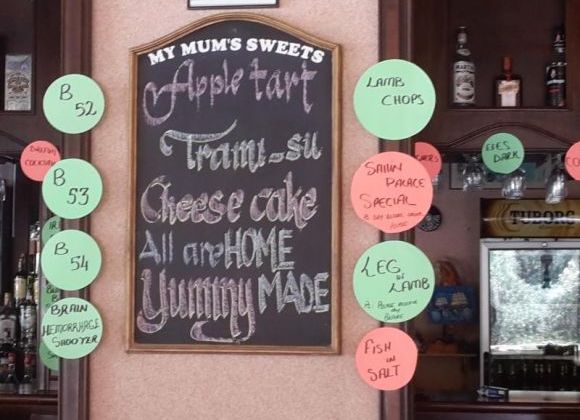 MY MUM'S SWEETS
Apple tart
Trami-su
Cheese cake
All are HOME
Yummy MADE
B
52
B
53
B
54
BRAIN
HEMORRHAGE
SHOOTER
LAMB
CHOPS
SAHIN
PALACE
SPECIAL
LEG
OF
LAMB
FISH
IN
SALT
EFES
DARK
TUBORG